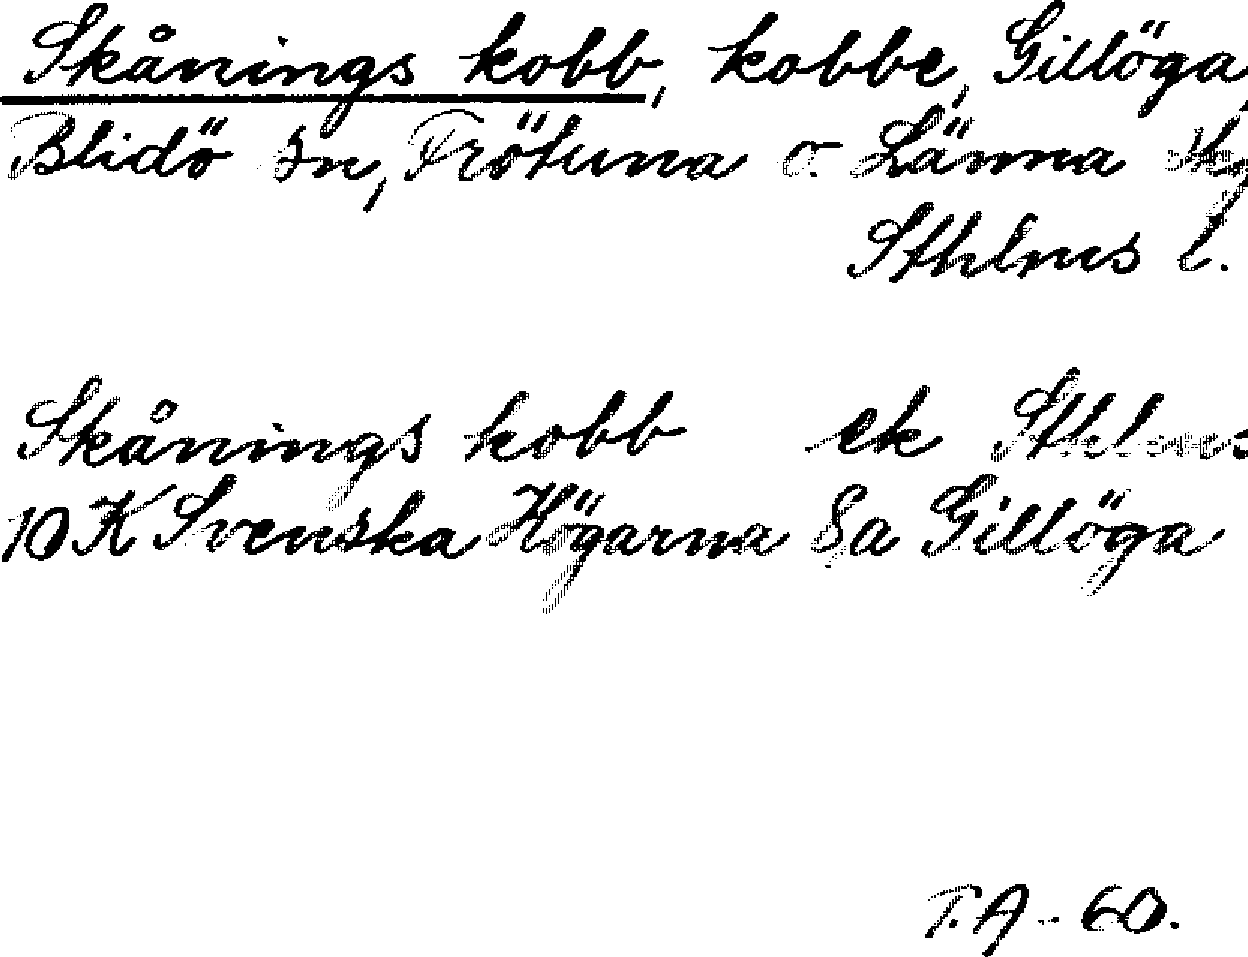 Skånings kobb, kobbe, Gillöga,
Blidö sn, Frötuna o. Länna skg
Sthlms l.
Skånings kobb ek Sthlms
10 K Svenska Högarna Sa Gillöga
T.A. 60.